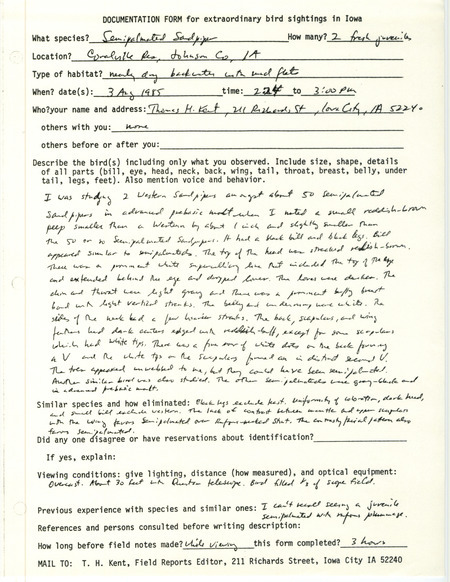 DOCUMENTATION FORM for extraordinary bird sightings in Iowa
What species? Semipalmated Sandpiper How many? 2 fresh juvenile
Location? Coralville Res, Johnson Co, IA
Type of habitat? nearly dry backwater with mud flats
When? date: 3 Aug 1985 time: 224 to 3:00 PM
Who? your name and address: Thomas H. Kent, 211 Richards St, Iowa City, IA 52240
others with you: none
others before or after you:
Describe the bird(s) including only what you observed. Include size, shape, details
of all parts (bill, eye, head, neck, back, wing, tail, throat, breast, belly, under
tail, legs, feet). Also mention voice and behavior.
I was studying 2 Western Sandpipers amongst about 50 Semipalmated
Sandpipers in advanced prebasic molt when I noted a small reddish-brown
peep smaller than a Western by about 1 inch and slightly smaller than
the 50 or so Semipalmated Sandpipers. It had a black bill and black legs. Bill
appeared similar to semipalmateds. The top of the head was streaked reddish-brown.
There was a prominent white superciliary line that included the top of the eye
and extended behind the eye and dropped lower. The lores were darker. The
chin and throat were light gray and there was a prominent buffy breast
band with light vertical streaks. The belly and underwing were white. The
sides of the neck had a few broader streaks. The back, scapulars, and wing
feathers had dark centers edged with reddish-buff, except for some scapulars
which had white tips. There was a fine row of white dots on the back forming
a V and the white tips on the scapulars formed an indistinct second V.
The toes appeared unwebbed to me, but they could have been semipalmated.
Another similar bird was also studied. The other semipalmateds were gray-black and
in advanced prebasic molt.
Similar species and how eliminated: Black legs exclude Least. Uniformity of coloration, dark breast,
and small bill exclude western. The lack of contrast between mantle and upper scapulars
with the wing favors Semipalmated over Rufous-necked Stint. The facial pattern also
favors semipalmated.
Did any one disagree or have reservations about identification?
If yes, explain:
Viewing conditions: give lighting, distance (how measured), and optical equipment:
Overcast. About 30 feet with Questar telescope. Bird filled 1/3 of scope field.
Previous experience with species and similar ones: I can't recall seeing a juvenile
semipalmated with rufous plumage.
References and persons consulted before writing description:
How long before field notes made? while viewing this form completed? 3 hours
MAIL TO: T. H. Kent, Field Reports Editor, 211 Richards Street, Iowa City IA 52240